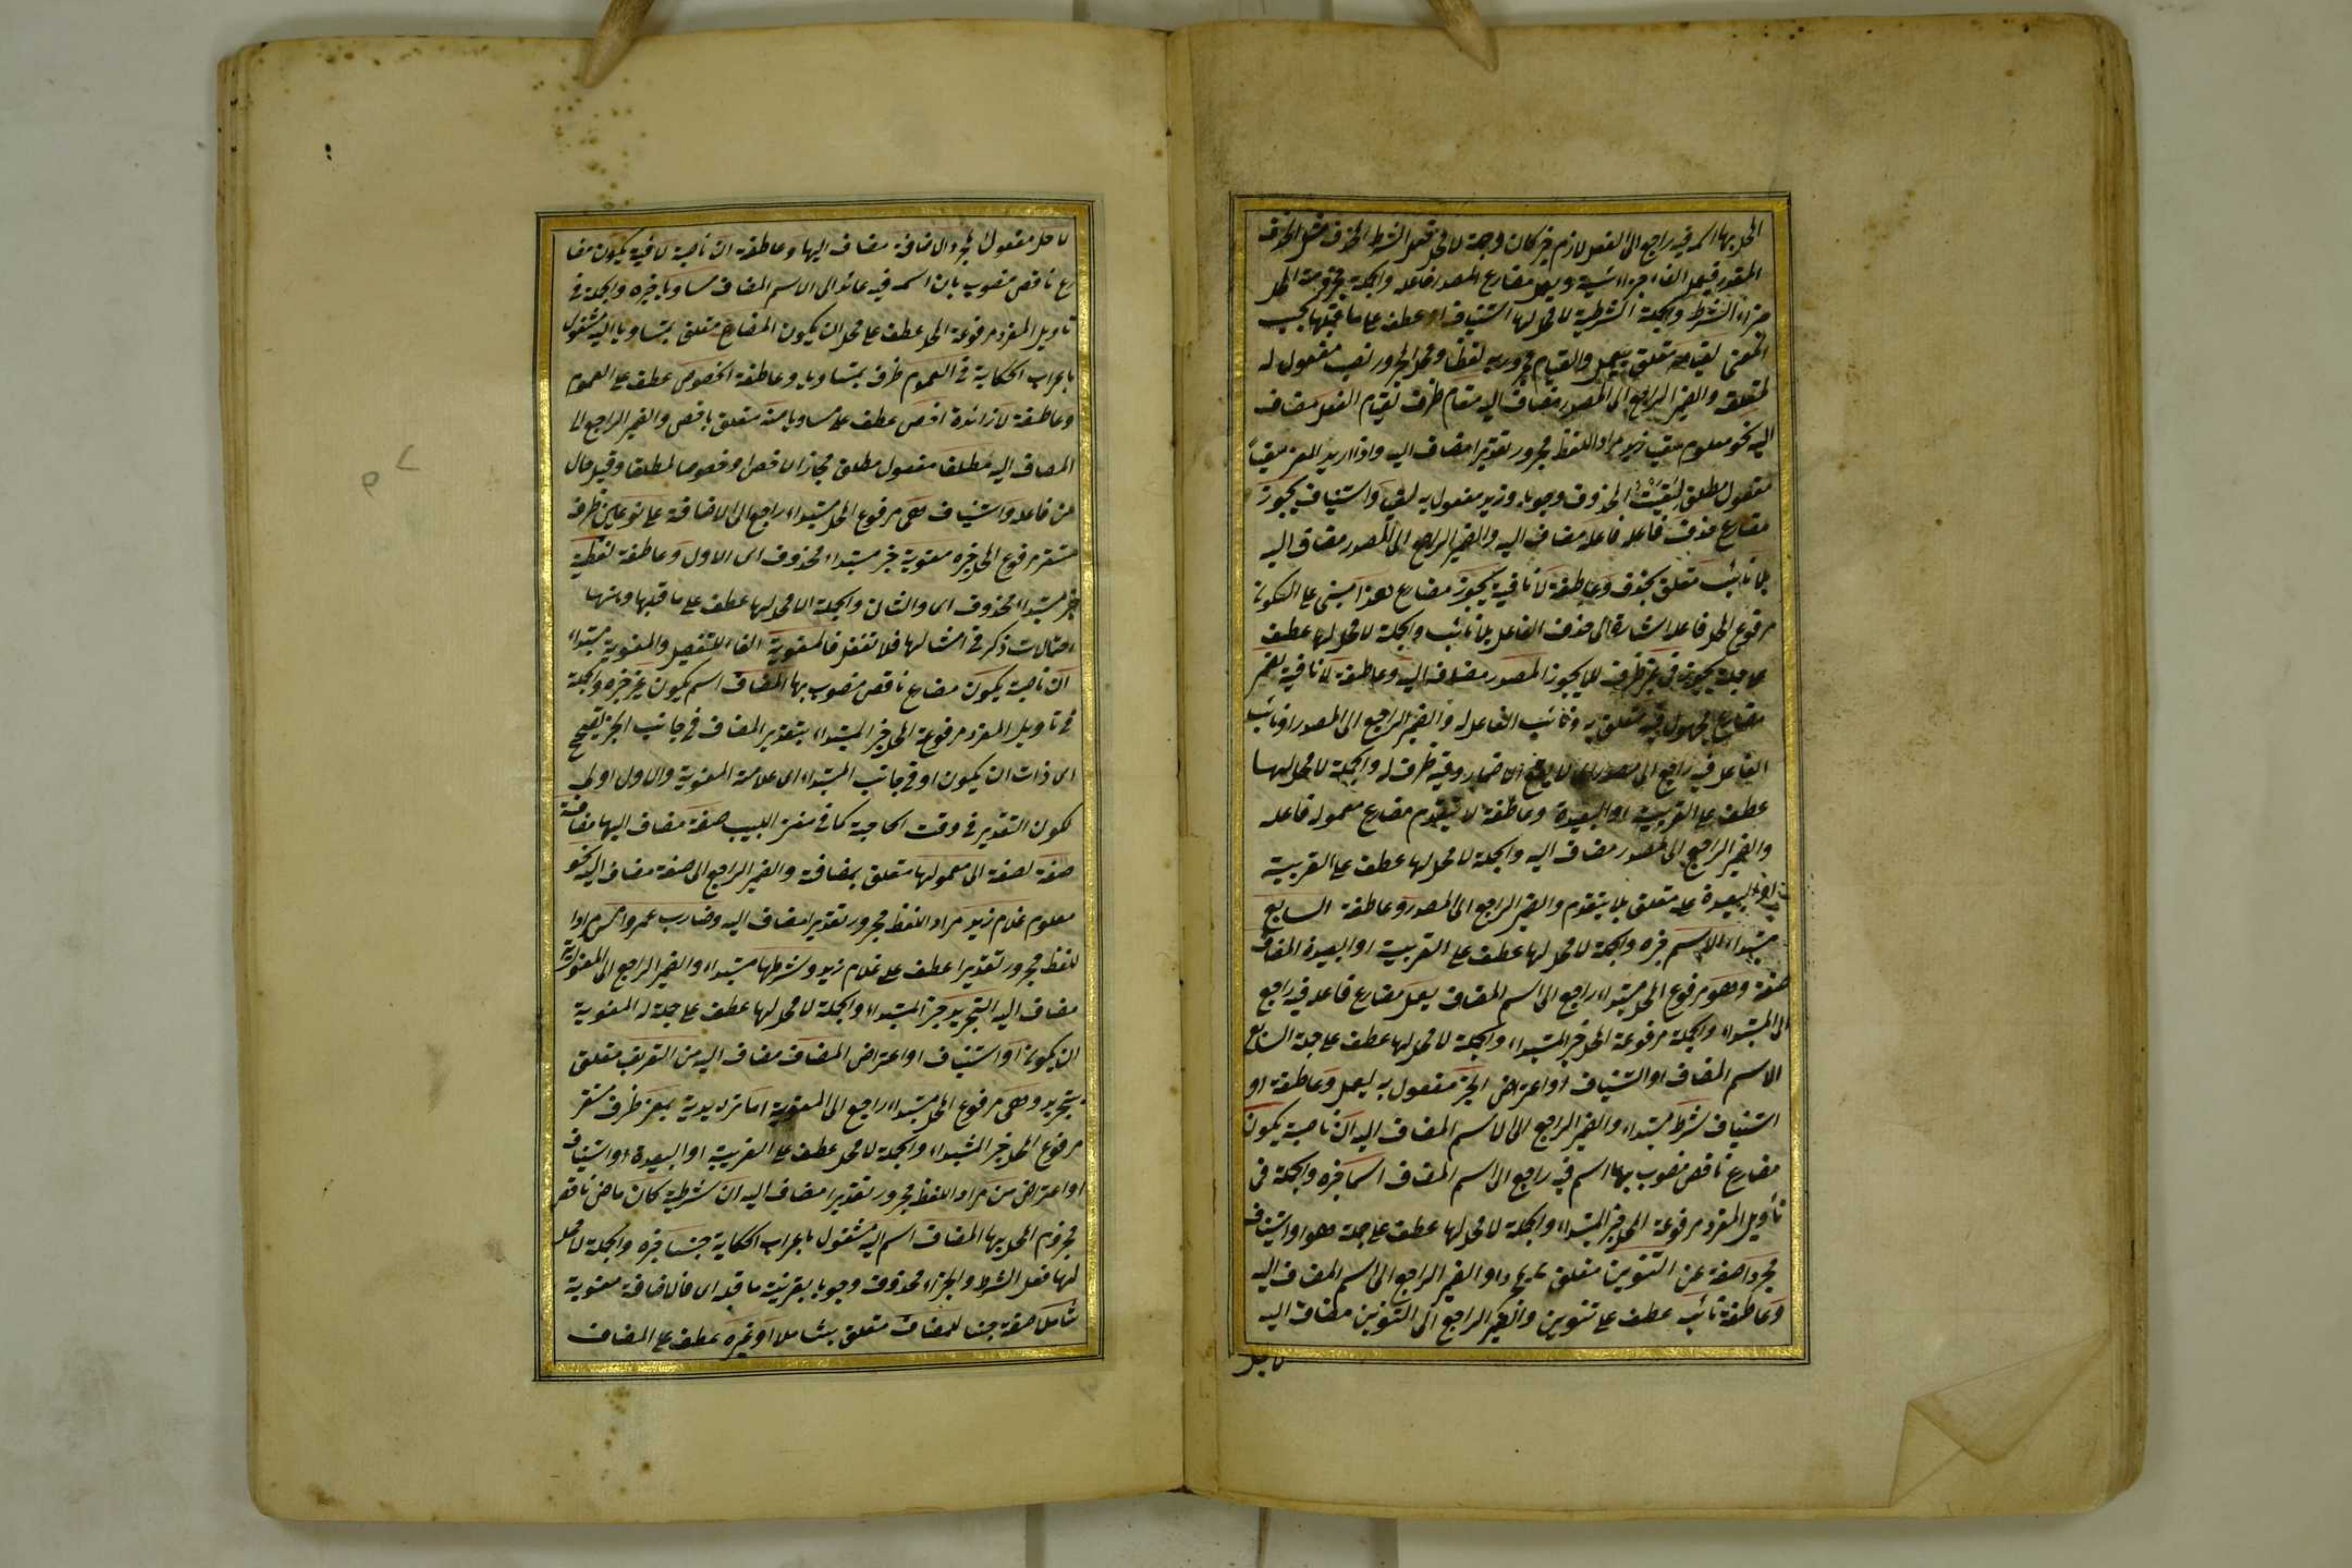 المحل بها اسمه فيه راجع الى الفعل لازم خبر كان وجملة لا محل فعل الشرط المحذوف
المقدر فيعمل الفاء جزائية ويعمل مضارع المصدر فاعله والجملة مجزومة المحل
جزاء الشرط والجملة الشرطية لا محل لها استيناف او عطف على ما قبلها بحسب
المعنى لقيامه متعلق بيعمل والقيام مجرور به لفظا ومحل المجرور نصب مفعول له
لمتعلقه والضمير الراجع الى المصدر مضاف اليه مقام ظرف لقيام الفعل مضاف
اليه نحو معلوم سقيا زيدا مراد اللفظ مجرور تقديرا مضاف اليه واذا اريد المعنى سقيا
مفعول مطلق لسقيت المحذوف وجوبا وزيدا مفعول به لسقيا واستيناف يجوز
مضارع حذف فاعله فاعله مضاف اليه والضمير الراجع الى المصدر مضاف اليه
بلا نائب متعلق بحذف وعاطفة لا نافية يجوز مضارع هذا مبنى على السكون
مرفوع المحل فاعله اشارة الى حذف الفاعل بلا نائب والجملة لا محل لها عطف
على جملة يجوز في غير ظرف للا يجوز المصدر مضاف اليه وعاطفة لا نافية يضمر
مضارع مجهول فيه متعلق به ونائب الفاعل له والضمير الراجع الى المصدر او نائب
الفاعل فيه راجع الى مصدره اى لا يقع الاضمار وفيه ظرف له والجملة لا محل لها
عطف على القريبة او البعيدة وعاطفة لا يتقدم مضارع معموله فاعله
والضمير الراجع الى مصدر مضاف اليه والجملة لا محل لها عطف على القريبة
او البعيدة عليه متعلق بلا يتقدم والضمير الراجع الى المصدر وعاطفة السابع
مبتداء الاسم خبره والجملة لا محل لها عطف على القريبة او البعيدة المضاف
صفة وهو مرفوع المحل مبتداء راجع الى اسم المضاف يعمل مضارع فاعله فيه راجع
الى المبتداء والجملة مرفوعة المحل خبر المبتداء والجملة لا محل لها عطف على جملة السابع
الاسم المضاف او استيناف او اعتراض الجر مفعول به ليعمل وعاطفة او
استيناف شرط مبتداء والضمير الراجع الى الاسم المضاف اليه ان ناصبة يكون
مضارع ناقص منصوب بها اسم فيه راجع الى اسم المضاف اسما خبره والجملة في
تأويل المفرد مرفوعة المحل خبر المبتداء والجملة لا محل لها عطف على جملة هو او استيناف
مجردا صفة عن التنوين متعلق بمجردا والضمير الراجع الى اسم المضاف اليه
وعاطفة نائب عطف على تنوين والضمير الراجع الى التنوين مضاف اليه
لاجل
لاجل مفعول لمجردا الاضافة مضاف اليها وعاطفة ان ناصبة لا نافية يكون مضا
رع ناقص منصوب بان اسمه فيه عائد الى الاسم المضاف مساويا خبره والجملة في
تأويل المفرد مرفوعة المحل عطف على محل ان يكون المضاف متعلق بمتساويا اليه مشغول
باعراب الحكاية في العموم ظرف بمتساويا وعاطفة الخصوص عطف على العموم
وعاطفة لا زائدة اخص عطف على مساويا منه متعلق باخص والضمير الراجع الى
المضاف اليه مطلقا مفعول مطلق مجازا لاخص او خصوصا لمطلقا وقيل حال
من فاعله واستيناف هى مرفوع المحل مبتداء راجع الى الاضافة على نوعين ظرف
مستقر مرفوع المحل خبره معنوية خبر مبتداء محذوف اى الاول وعاطفة لفظية
خبر مبتداء محذوف اى والثان والجملة لا محل لها عطف على ما قبلها وبينها
احتمالات ذكر في امثالها فلا تغفل فالمعنوية الفاء للتفصيل والمعنوية مبتداء
ان ناصبة يكون مضارع ناقص منصوب بها المضاف اسم يكون غير خبره والجملة
في تأويل المفرد مرفوعة المحل خبر المبتداء بتقدير المضاف في جانب الجر يتصح
اى ذات ان يكون او في جانب المبتداء اى علامة المعنوية والاول اولى
لكون التقدير في وقت الحاجة كما في مغنى اللبيب صفة مضاف اليها مضافة
صفة لصفة الى معمولها متعلق بمضافة والضمير الراجع الى صفة مضاف اليه نحو
معلوم غلام زيد مراد اللفظ مجرور تقديرا مضاف اليه وضارب عمرو امس مراد
اللفظ مجرور تقديرا عطف على غلام زيد وشرطها مبتداء والضمير الراجع الى المعنوية
مضاف اليه التجريد خبر المبتداء والجملة لا محل لها عطف على جملة له المعنوية
ان يكون او استيناف او اعتراض المضاف مضاف اليه من التعريف متعلق
بتجريد وهى مرفوع المحل مبتداء راجع الى المعنوية اما ترديدية بمعنى ظرف مستقر
مرفوع المحل خبر المبتداء والجملة لا محل عطف على القريبة او البعيدة او استيناف
او اعتراض من مراد اللفظ مجرور تقديرا مضاف اليه ان شرطية كان ماض ناقص
مجزوم المحل بها المضاف اسم اليه مشغول باعراب الحكاية جنسا خبره والجملة لا محل
لها فعل الشرط والجزاء محذوف وجوبا بقرينة ما قبله اى فالاضافة معنوية
شاملا صفة جنسا للمضاف متعلق بشاملا او غيره عطف على المضاف